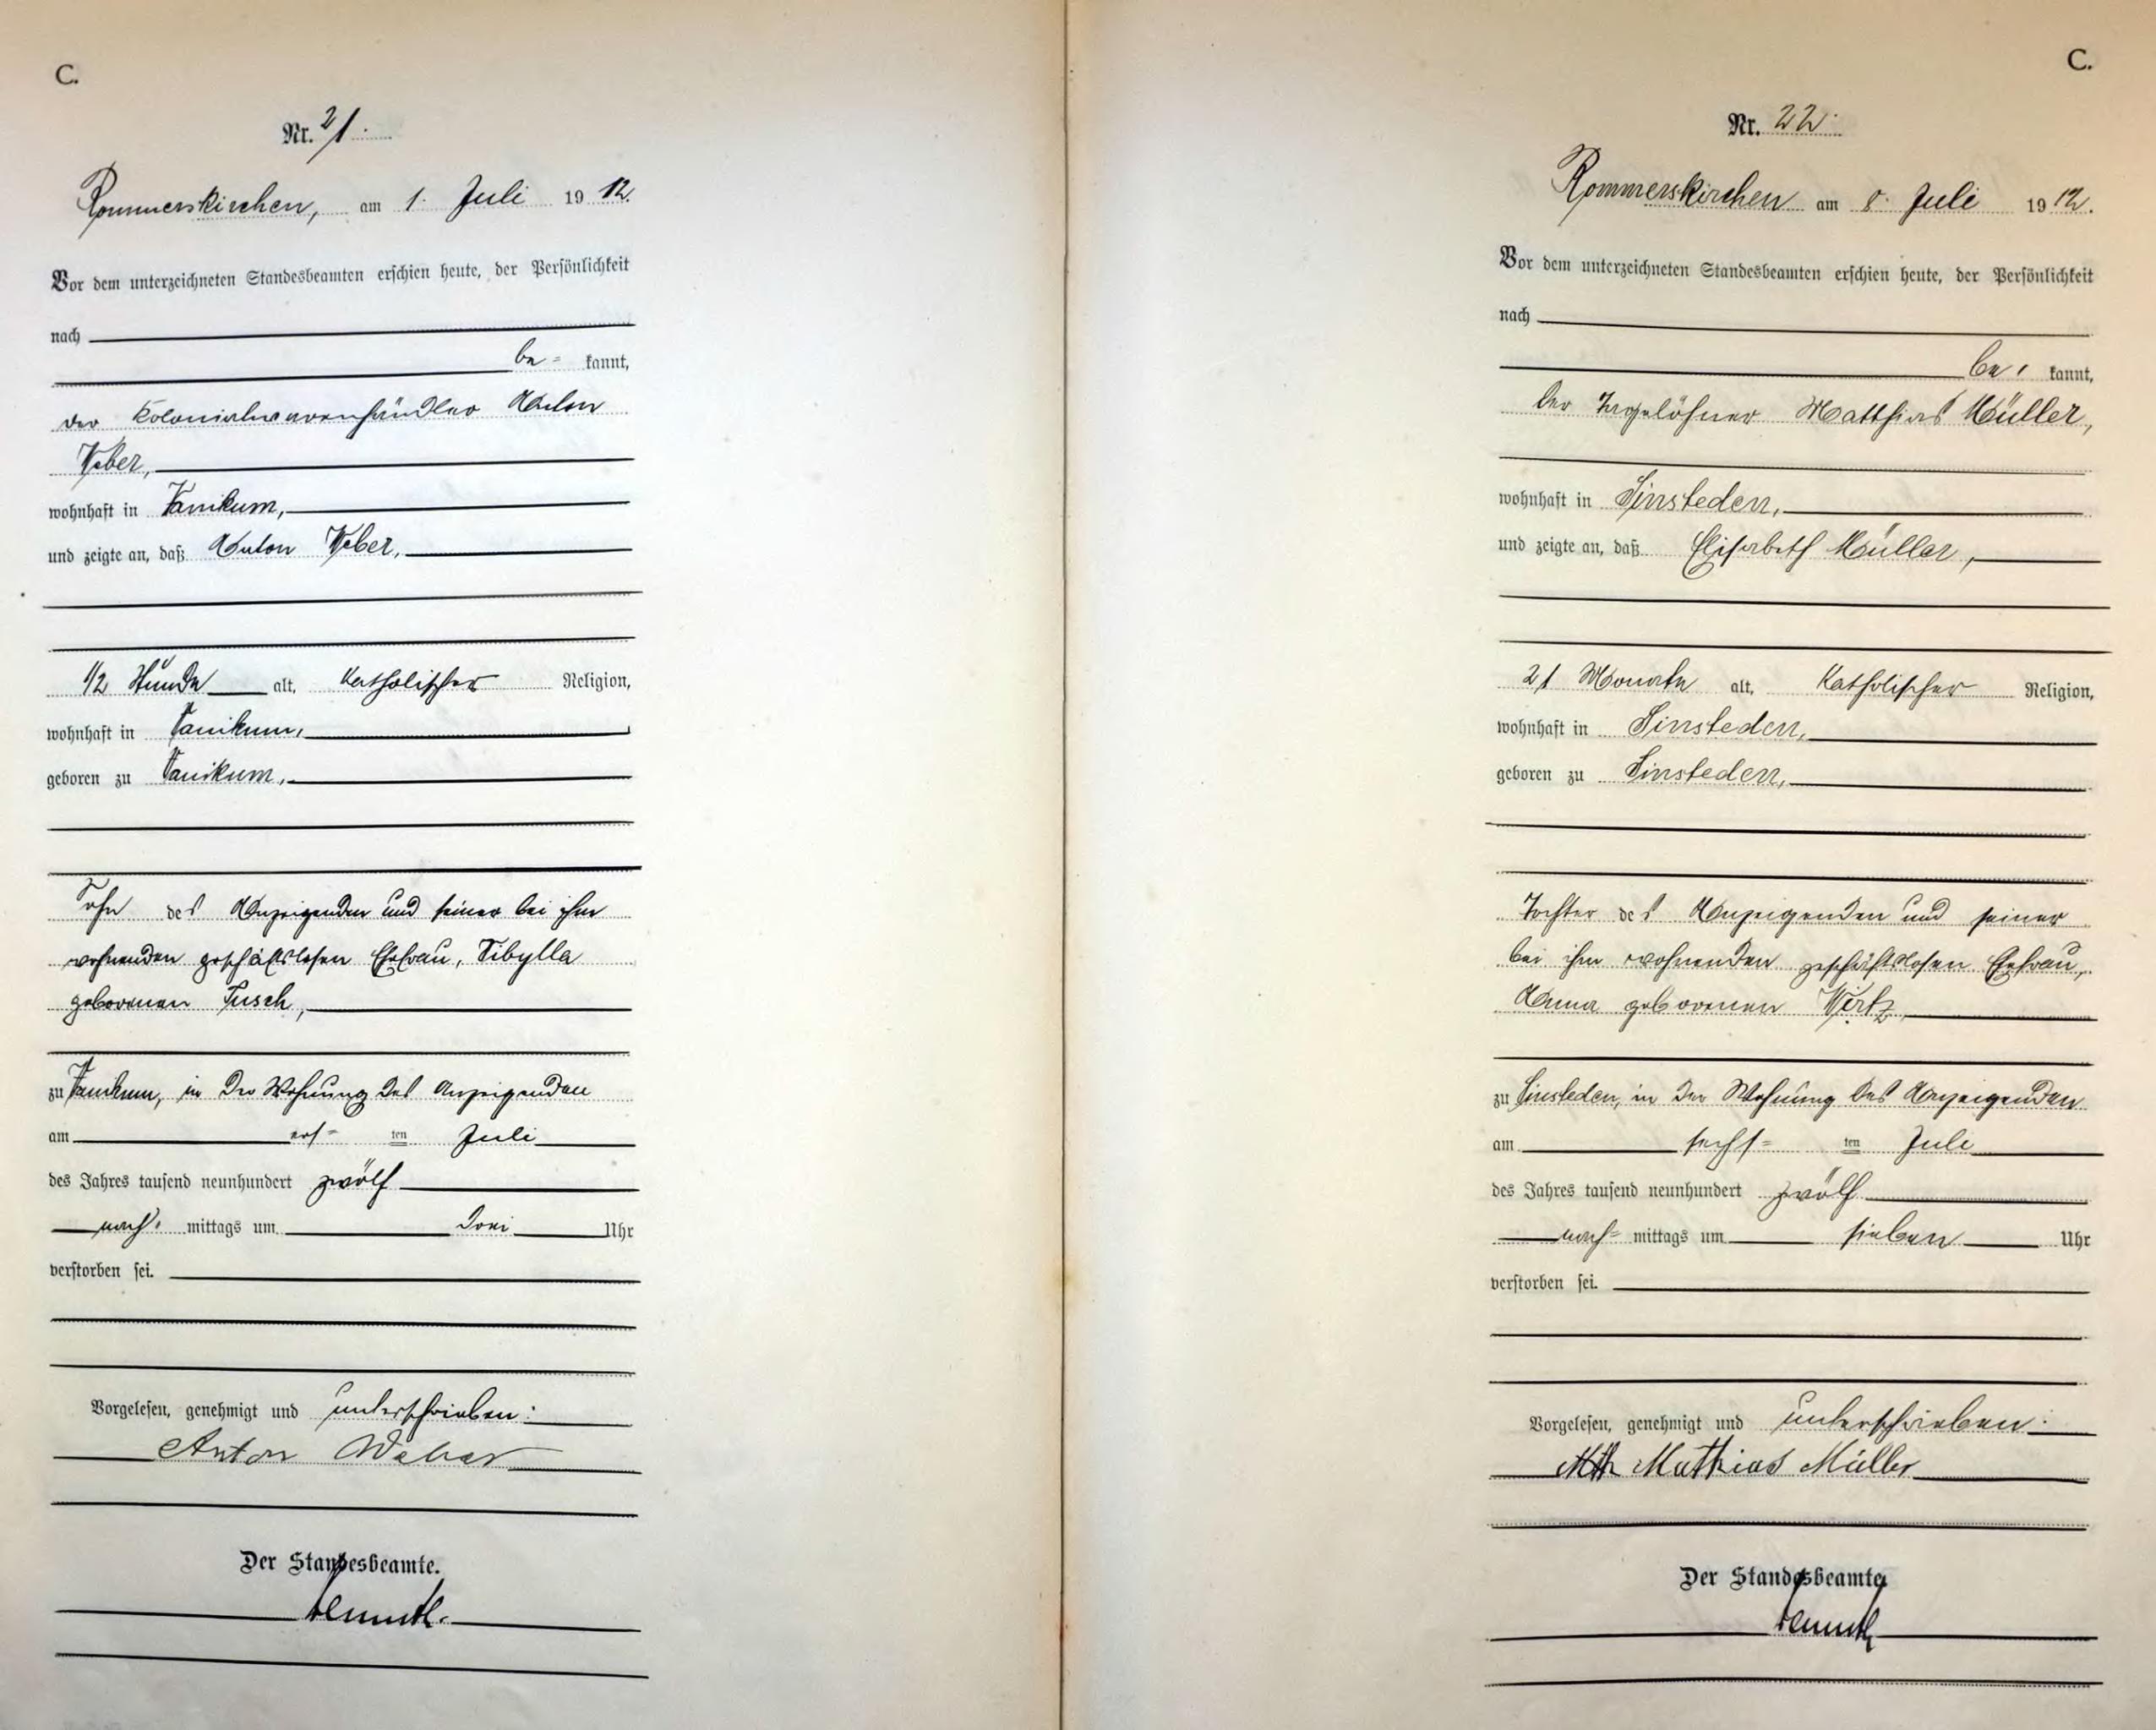 C.
Nr. 21.
Rommerskirchen, am 1. Juli 1912.
Vor dem unterzeichneten Standesbeamten erschien heute, der Persönlichkeit
nach
be= kannt,
der Kolonialwarenhändler Anton
Weber,
wohnhaft in Vanikum,
und zeigte an, daß Anton Weber,
1/2 Stunde alt, katholischer Religion,
wohnhaft in Vanikum,
geboren zu Vanikum,
Sohn des Anzeigenden und seiner bei ihm
wohnenden geschäftslosen Ehefrau, Sibylla
geborenen Tusch,
zu Vanikum, in der Wohnung des Anzeigenden
am erst= ten Juli
des Jahres tausend neunhundert zwölf
nach= mittags um drei Uhr
verstorben sei.
Vorgelesen, genehmigt und unterschrieben:
Anton Weber
Der Standesbeamte.
C.
Nr. 22.
Rommerskirchen am 8. Juli 1912.
Vor dem unterzeichneten Standesbeamten erschien heute, der Persönlichkeit
nach
be= kannt,
der Tagelöhner Matthias Müller,
wohnhaft in Sinsteden,
und zeigte an, daß Elisabeth Müller,
21 Monate alt, katholischer Religion,
wohnhaft in Sinsteden,
geboren zu Sinsteden,
Tochter des Anzeigenden und seiner
bei ihm wohnenden geschäftslosen Ehefrau,
Anna geborenen Wirtz,
zu Sinsteden, in der Wohnung des Anzeigenden
am sechs= ten Juli
des Jahres tausend neunhundert zwölf
nach= mittags um sieben Uhr
verstorben sei.
Vorgelesen, genehmigt und unterschrieben:
Mathias Müller
Der Standesbeamte.